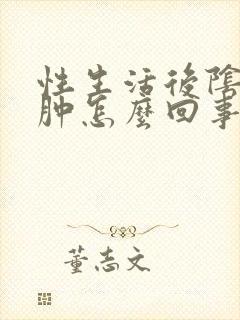 性生活後陰
肿怎麼回事
董志文